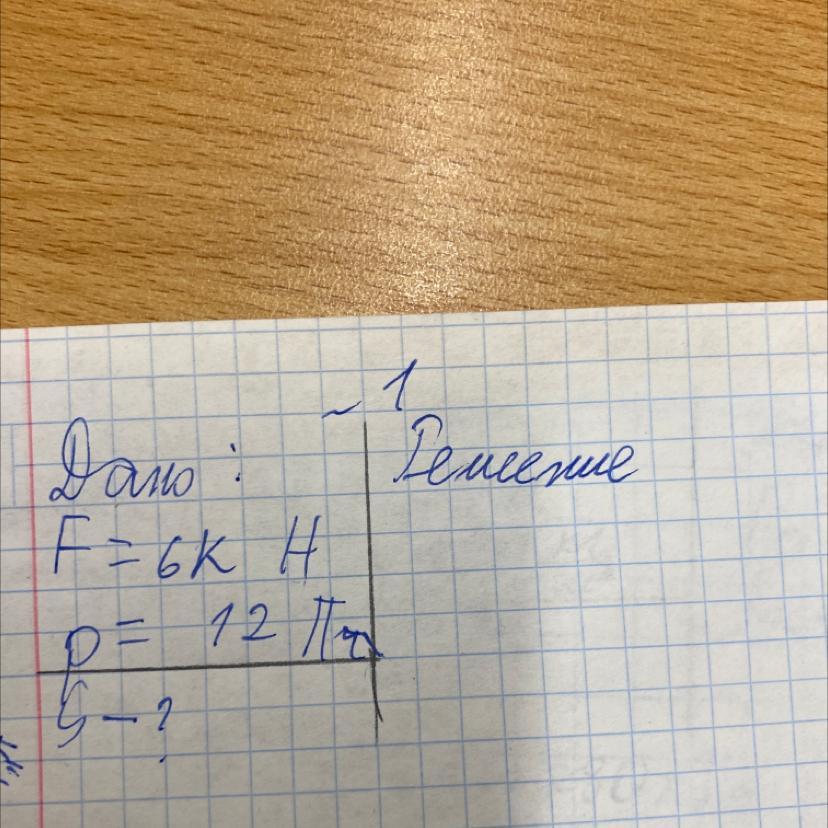 ~ 1
Дано:
Решение
F = 6К Н
p = 12 Па
S - ?